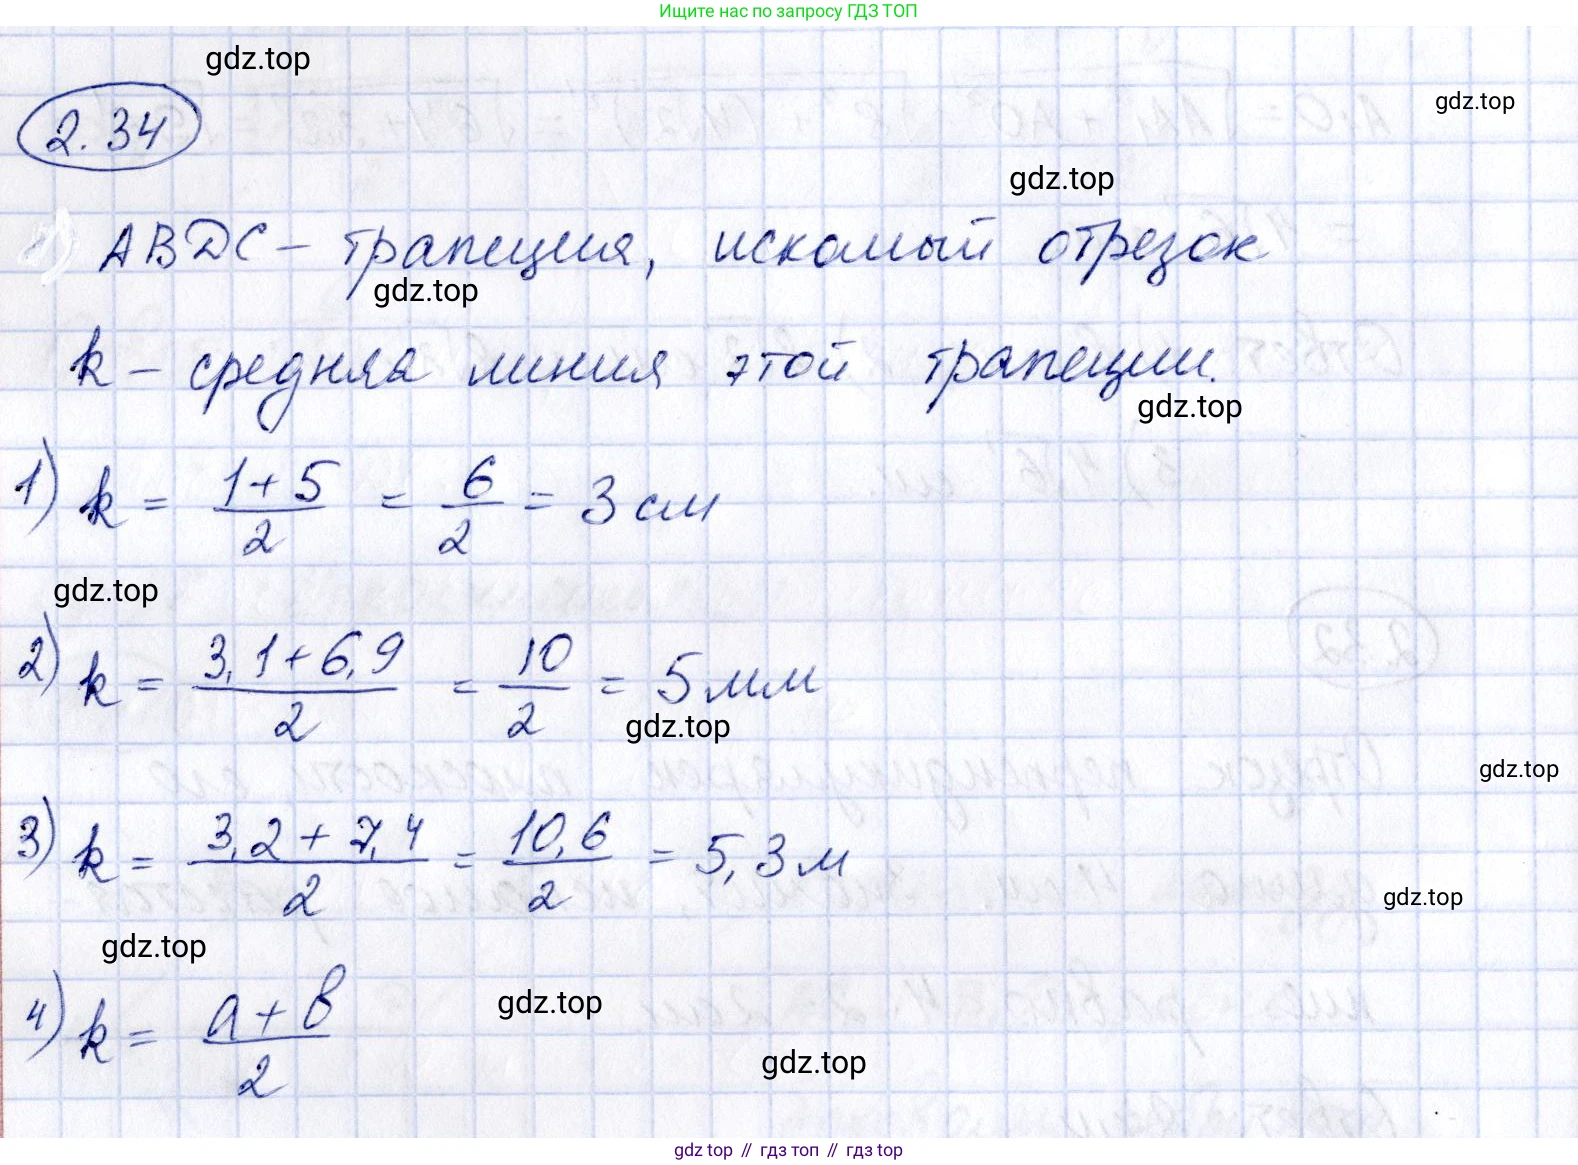 Ищите нас по запросу ГДЗ ТОП
gdz.top
gdz.top
2.34
gdz.top
ABDC – трапеция, искомый отрезок
gdz.top
k – средняя линия этой трапеции.
gdz.top
1) k = (1+5)/2 = 6/2 = 3 см
gdz.top
2) k = (3,1+6,9)/2 = 10/2 = 5 мм
gdz.top
gdz.top
3) k = (3,2+7,4)/2 = 10,6/2 = 5,3 м
gdz.top
gdz.top
4) k = (a+b)/2
gdz.top
gdz.top
gdz top // гдз топ // gdz top